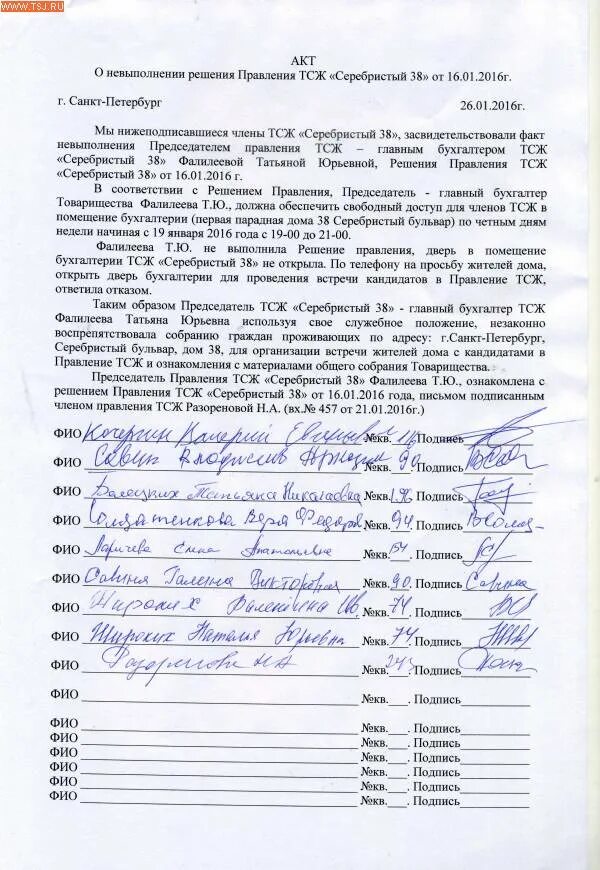 www.TSJ.RU
АКТ
О невыполнении решения Правления ТСЖ «Серебристый 38» от 16.01.2016г.
г. Санкт-Петербург 26.01.2016г.
Мы нижеподписавшиеся члены ТСЖ «Серебристый 38», засвидетельствовали факт
невыполнения Председателем правления ТСЖ – главным бухгалтером ТСЖ
«Серебристый 38» Фалилеевой Татьяной Юрьевной, Решения Правления ТСЖ
«Серебристый 38» от 16.01.2016 г.
В соответствии с Решением Правления, Председатель - главный бухгалтер
Товарищества Фалилеева Т.Ю., должна обеспечить свободный доступ для членов ТСЖ в
помещение бухгалтерии (первая парадная дома 38 Серебристый бульвар) по четным дням
недели начиная с 19 января 2016 года с 19-00 до 21-00.
Фалилеева Т.Ю. не выполнила Решение правления, дверь в помещение
бухгалтерии ТСЖ «Серебристый 38» не открыла. По телефону на просьбу жителей дома,
открыть дверь бухгалтерии для проведения встречи кандидатов в Правление ТСЖ,
ответила отказом.
Таким образом Председатель ТСЖ «Серебристый 38» - главный бухгалтер ТСЖ
Фалилеева Татьяна Юрьевна используя свое служебное положение, незаконно
воспрепятствовала собранию граждан проживающих по адресу: г.Санкт-Петербург,
Серебристый бульвар, дом 38, для организации встречи жителей дома с кандидатами в
Правление ТСЖ и ознакомления с материалами общего собрания Товарищества.
Председатель Правления ТСЖ «Серебристый 38» Фалилеева Т.Ю., ознакомлена с
решением Правления ТСЖ «Серебристый 38» от 16.01.2016 года, письмом подписанным
членом правления ТСЖ Разореновой Н.А. (вх.№ 457 от 21.01.2016г.)
ФИО Кочергин Валерий Евгеньевич №кв. Подпись
ФИО Савин Владислав №кв. 90 Подпись
ФИО Балецких Татьяна Николаевна №кв. 196 Подпись
ФИО Солдатенкова Вера Федоров №кв. 94 Подпись
ФИО Ларичева Елена Анатольевна №кв. 54 Подпись
ФИО Савина Галина Викторовна №кв. 90. Подпись Савина
ФИО Широких Валентина Ив. №кв. 74 Подпись
ФИО Широких Наталья Юрьевна №кв. 74 Подпись
ФИО НА №кв. 243 Подпись
ФИО №кв.___. Подпись
ФИО №кв.___. Подпись
ФИО №кв.___. Подпись
ФИО №кв.___. Подпись
ФИО №кв.___. Подпись
ФИО №кв.___. Подпись
ФИО №кв.___. Подпись